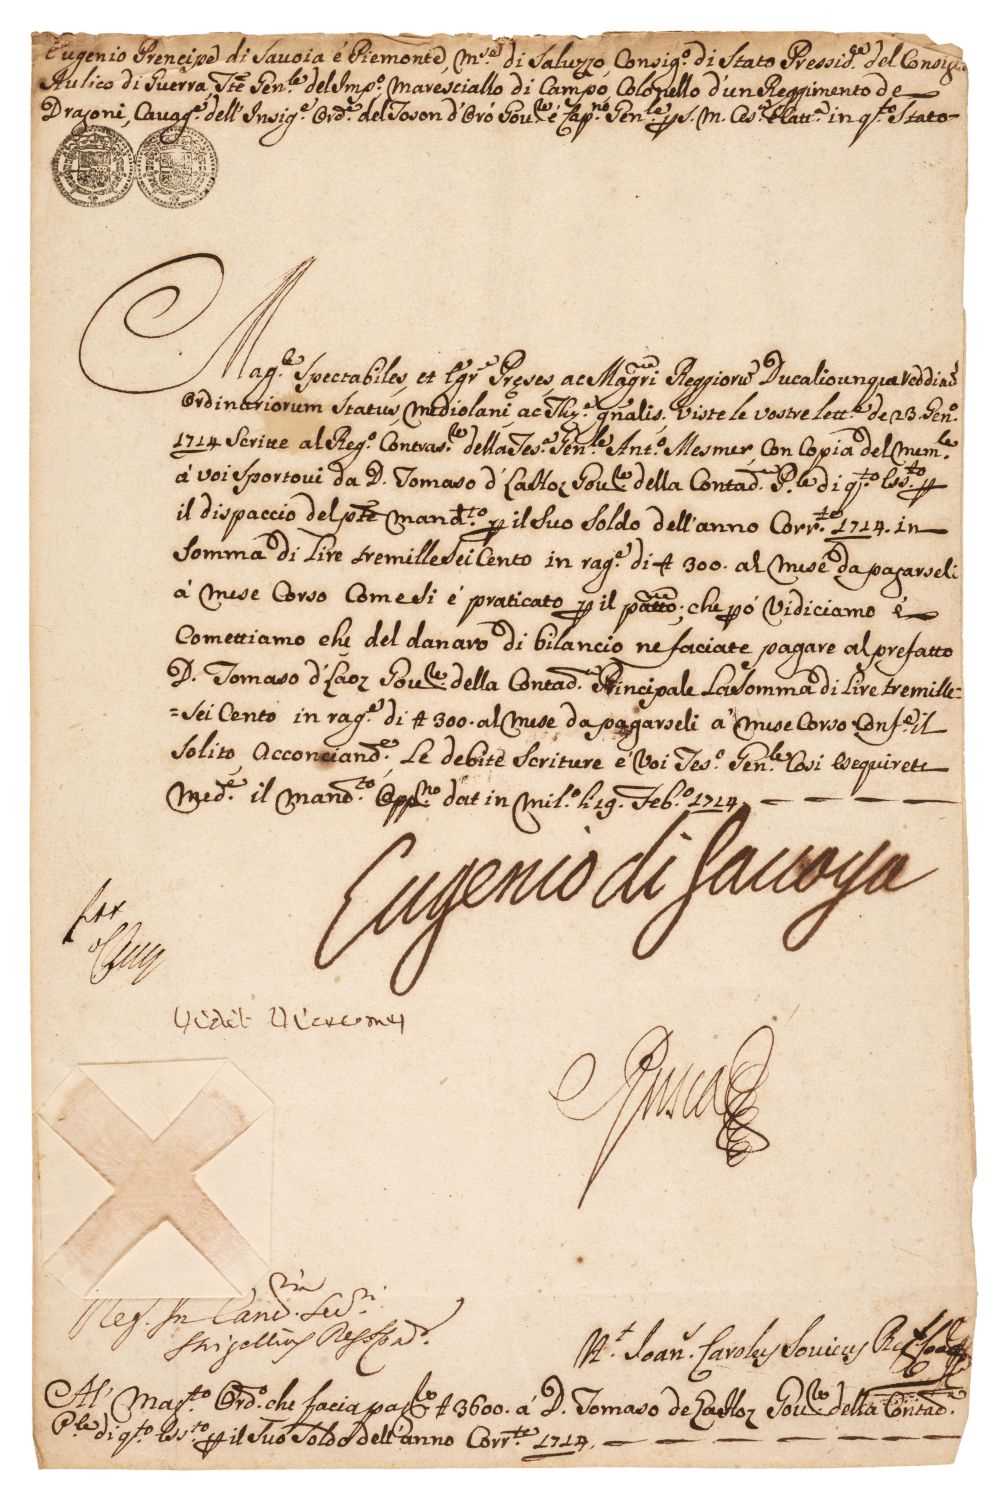 Eugenio Prencipe di Savoia é Piemonte, M.se di Saluzzo, Consig.o di Stato Pressid.e del Consig.
Aulico di Guerra, Ten.te Gen.le del Imp.o Maresciallo di Campo, Colonello d'un Reggimento de
Dragoni, Cauagg.e dell'Insig.e Ord.e del Toson d'Oró Gou.le é Cap.no Gen.le p S. M. Ces.a e Catt.a in q.to Stato
Mag.le Spectabiles, et Egr. Preses, ac Mag.ri Reggioru Ducaliounque Reddituũ
Ordinariorum Status Mediolani, ac Thes.s gñalis. Viste le vostre lett.e de 23. Gen.o
1714 Scritte al Reg.o Contras.le della Tes.a Gen.le Ant.o Mesmer, con Copia del mem.le
á voi Sportoui da D. Tomaso d' Gou.le della Contad.e P.le di q.to p
il dispaccio del p.te mand.to p il Suo Soldo dell'anno Corr.te 1714. in
Somma di Lire tremille Sei Cento in rag.e di £ 300. al mese da pagarseli
á mese Corso Come Si é praticato p il; che pó Vi diciamo é
Comettiamo che del danaro di bilancio ne faciate pagare al prefatto
D. Tomaso d' Gou.le della Contad.e Principale La Somma di Lire tremille=
=Sei Cento in rag.e di £ 300. al mese da pagarseli á mese Corso Conf.e il
Solito, Acconciand.e Le debite Scritture é Voi Tes.o Gen.le Cosi esequirete
Med.e il mand.to Opp.no dat in Mil.o li 19. Feb.o 1714
Eugenio di Savoya
Vidit Vicecomes
Rusca
Reg. In Canc.ria Secr.i
N.t Joan. Carolus
Al' Mag.to Ord.o che facia pag.e £ 3600. á D. Tomaso de Gou.le della Contad.e
P.le di q.to p il Suo Soldo dell'anno Corr.te 1714.